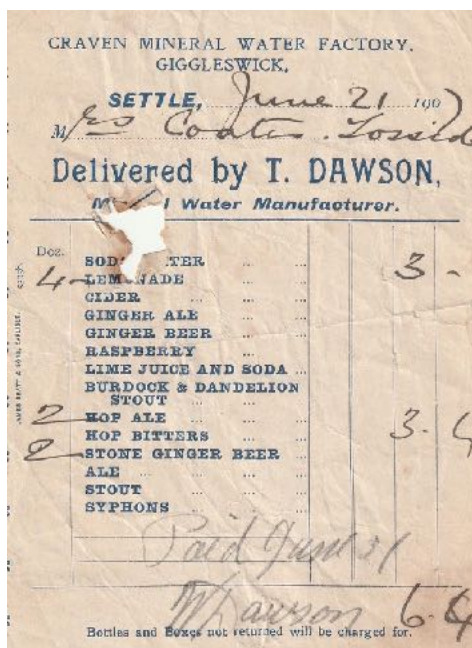 CRAVEN MINERAL WATER FACTORY.
GIGGLESWICK,
SETTLE, June 21 1907
Mrs Coates. Tosside
Delivered by T. DAWSON,
Water Manufacturer.
Doz.
SODA WATER ... ... 3 -
4 LEMONADE ... ...
CIDER ... ... ...
GINGER ALE ... ...
GINGER BEER ... ...
RASPBERRY ... ...
LIME JUICE AND SODA ...
BURDOCK & DANDELION
STOUT ... ...
2 HOP ALE ... ...
HOP BITTERS ... ... 3 - 4
2 STONE GINGER BEER ...
ALE ... ... ...
STOUT ... ... ...
SYPHONS ... ...
Paid June 21
T Dawson 6 - 4
Bottles and Boxes not returned will be charged for.